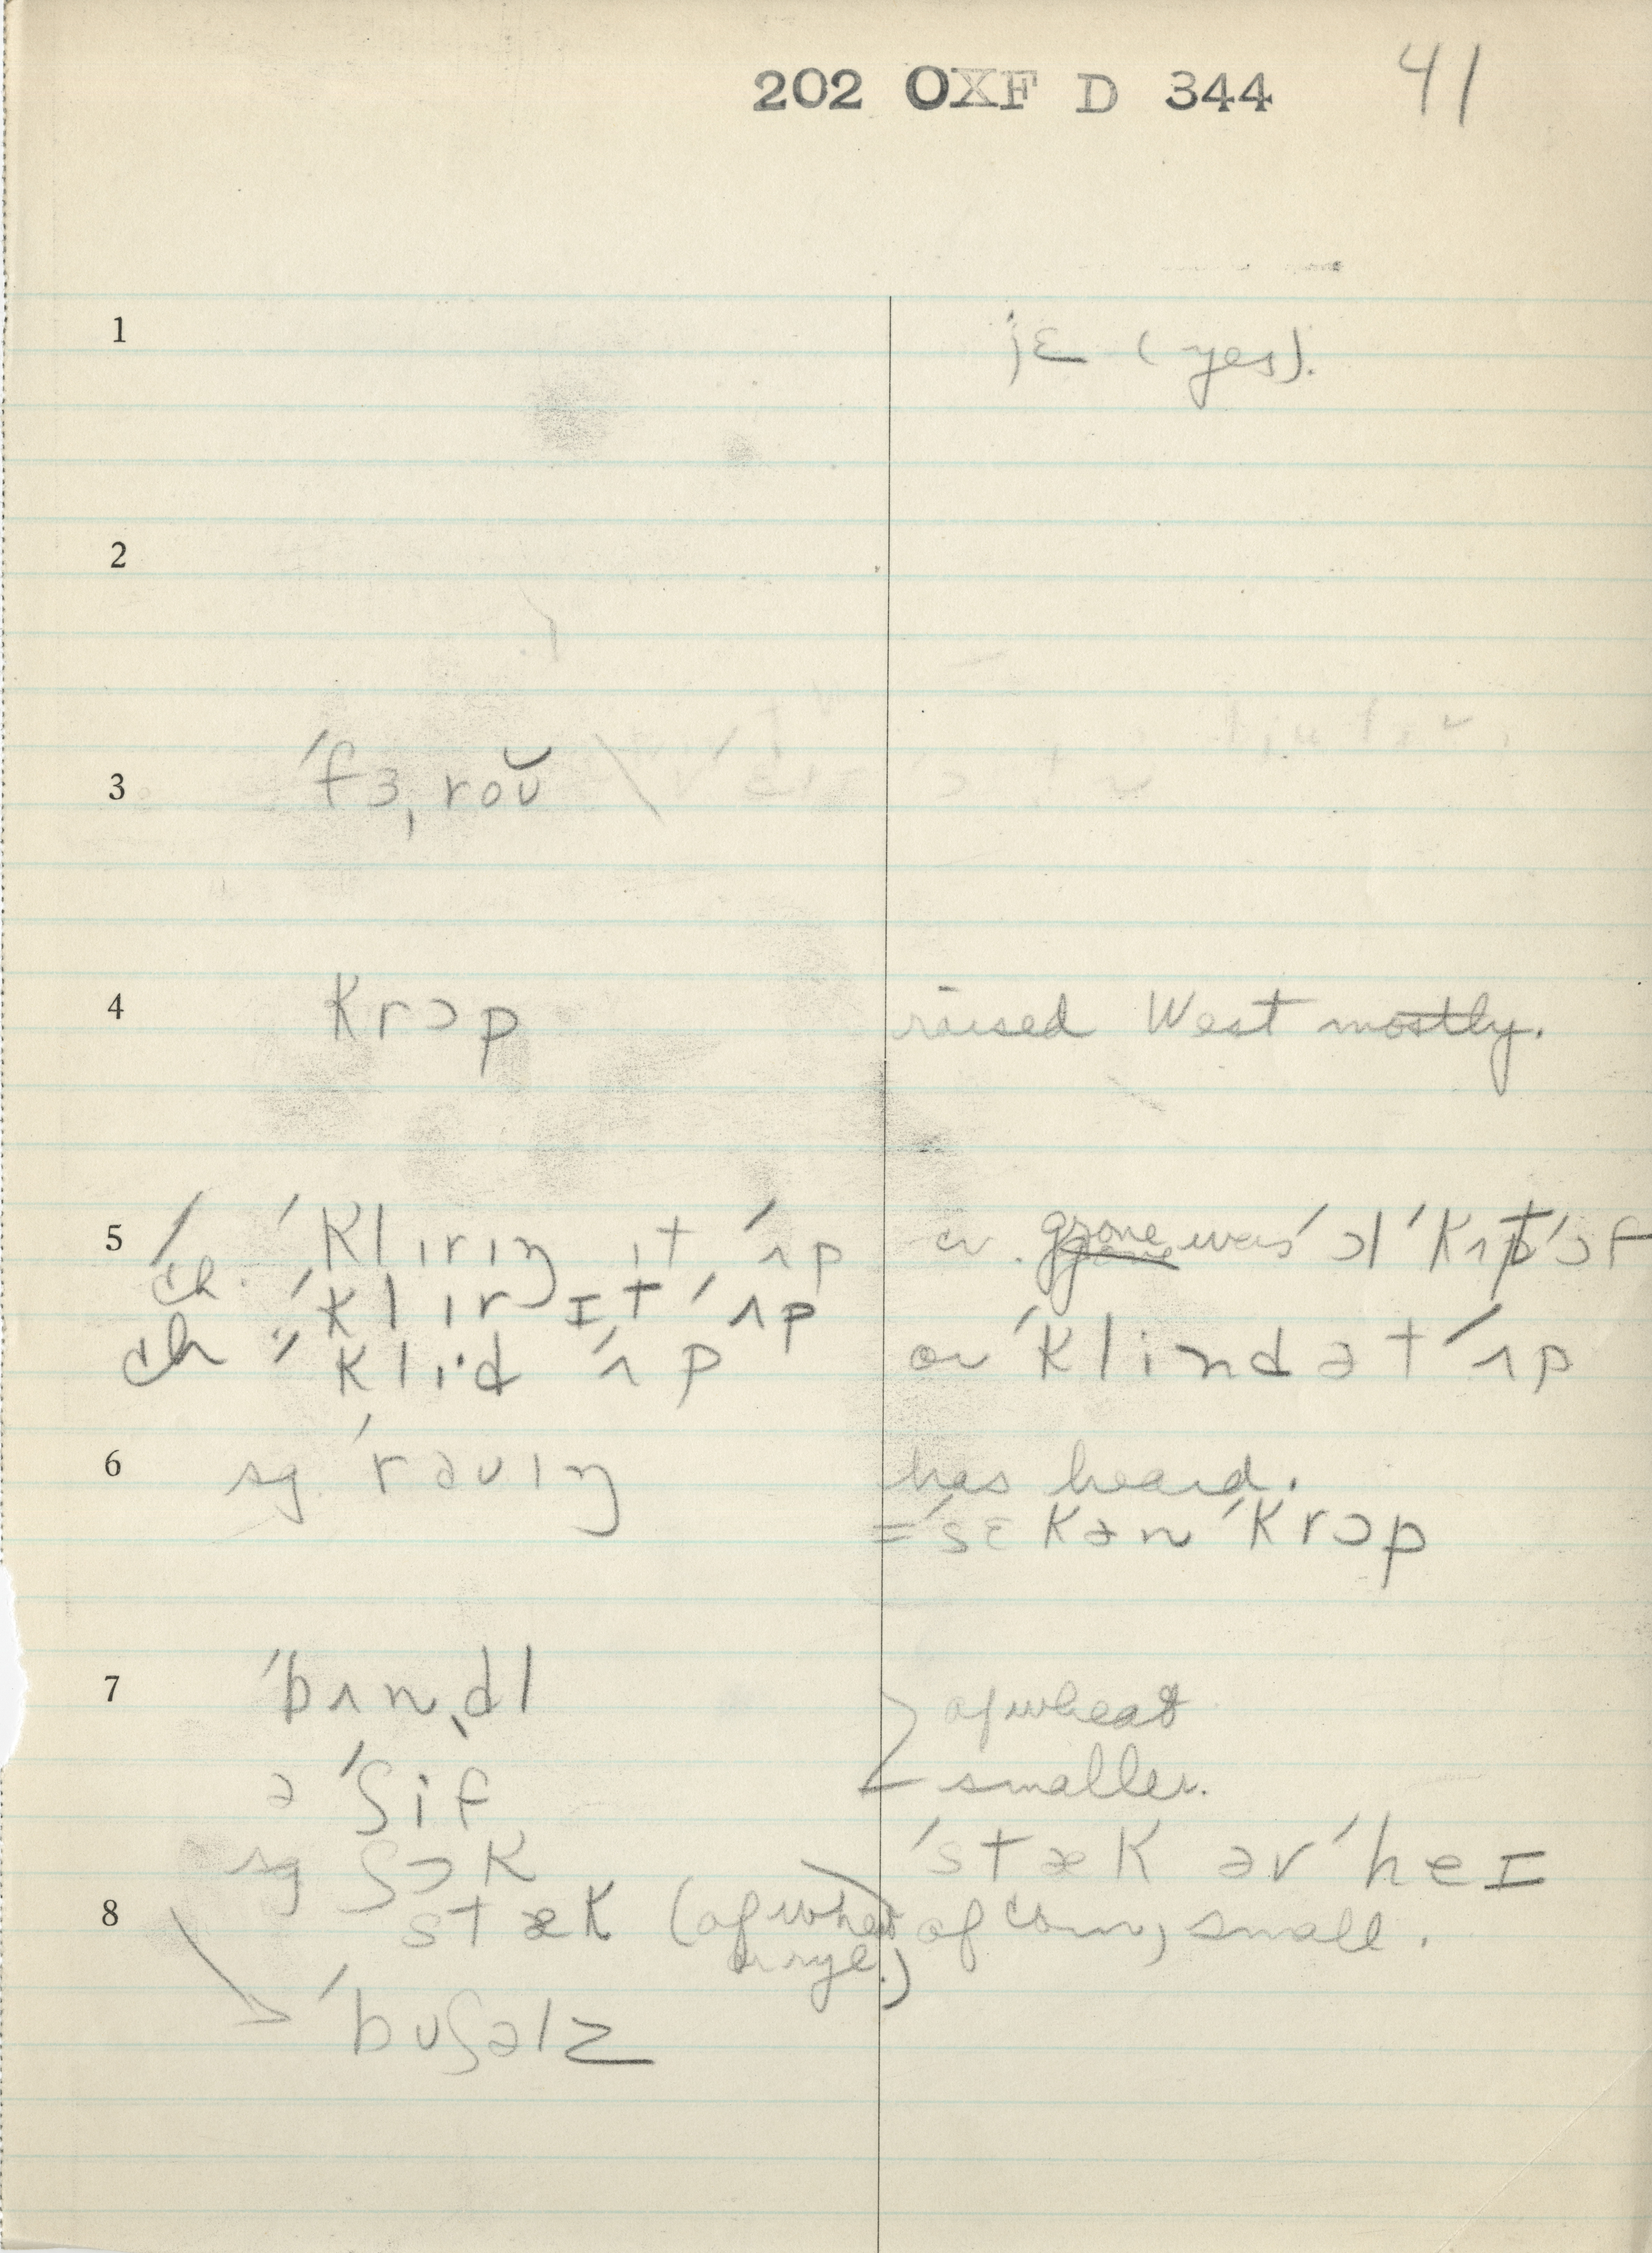 202 OXF D 344 41
1 jɛ (yes).
2
3 ˈfɜˌroʊ̆
4 krɔp raised West mostly.
5 ch. ˈklɪrɪŋ ɪt ˈʌp cv. grove was ˈɔl ˈkʌt ˈɔf
ch. ˈklɪrɪt ˈʌp
ch ˈklid ˈʌp or ˈklindət ˈʌp
6 sg. ˈrəʊɪŋ has heard.
= ˈsɛkən ˈkrɔp
7 ˈbʌnˌdl of wheat
ə ˈʃif smaller.
sg ʃɔk ˈstæk əv ˈheɪ
8 stæk (of wheat or rye.) of corn, small.
ˈbʊʃəlz